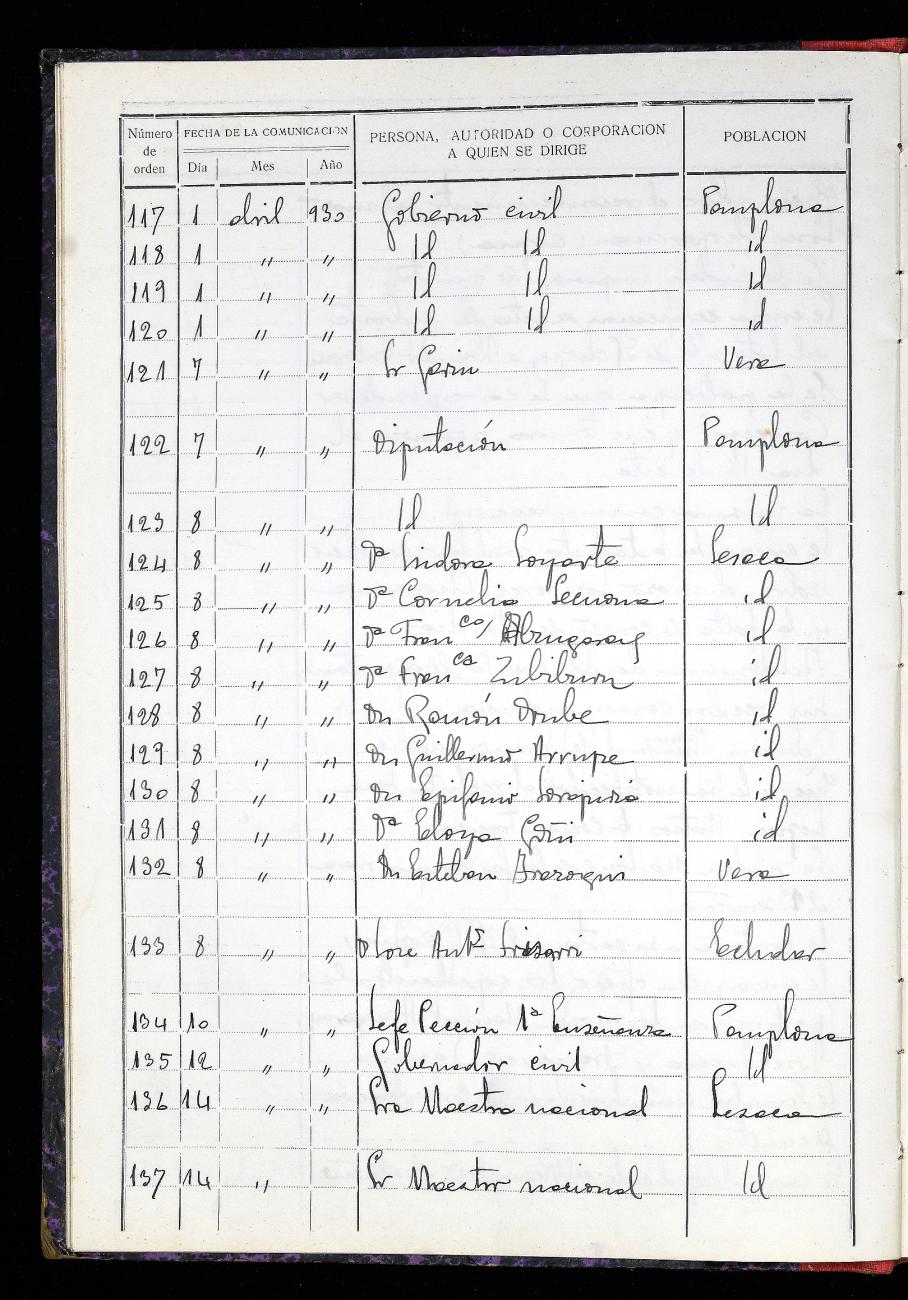 Número de orden FECHA DE LA COMUNICACIÓN PERSONA, AUTORIDAD O CORPORACION A QUIEN SE DIRIGE POBLACION
Día Mes Año
117 1 abril 930 Gobierno civil Pamplona
118 1 " " Id Id id
119 1 " " Id Id id
120 1 " " Id Id id
121 7 " " Sr Garin Vera
122 7 " " Diputación Pamplona
123 8 " " Id Id
124 8 " " Dª Isidora Loyarte Lesaca
125 8 " " Dª Cornelia Lecuona id
126 8 " " Dª Franca id
127 8 " " Dª Franca id
128 8 " " Dn Ramón id
129 8 " " Dn Guillermo Arrupe id
130 8 " " Dn Epifanio id
131 8 " " Dª Eloya Goñi id
132 8 " " Dn Esteban Vera
133 8 " " D Jose Antº Irisarri Echalar
134 10 " " Jefe Sección 1ª Enseñanza Pamplona
135 12 " " Gobernador civil Id
136 14 " " Sra Maestra nacional Lesaca
137 14 " Sr Maestro nacional Id